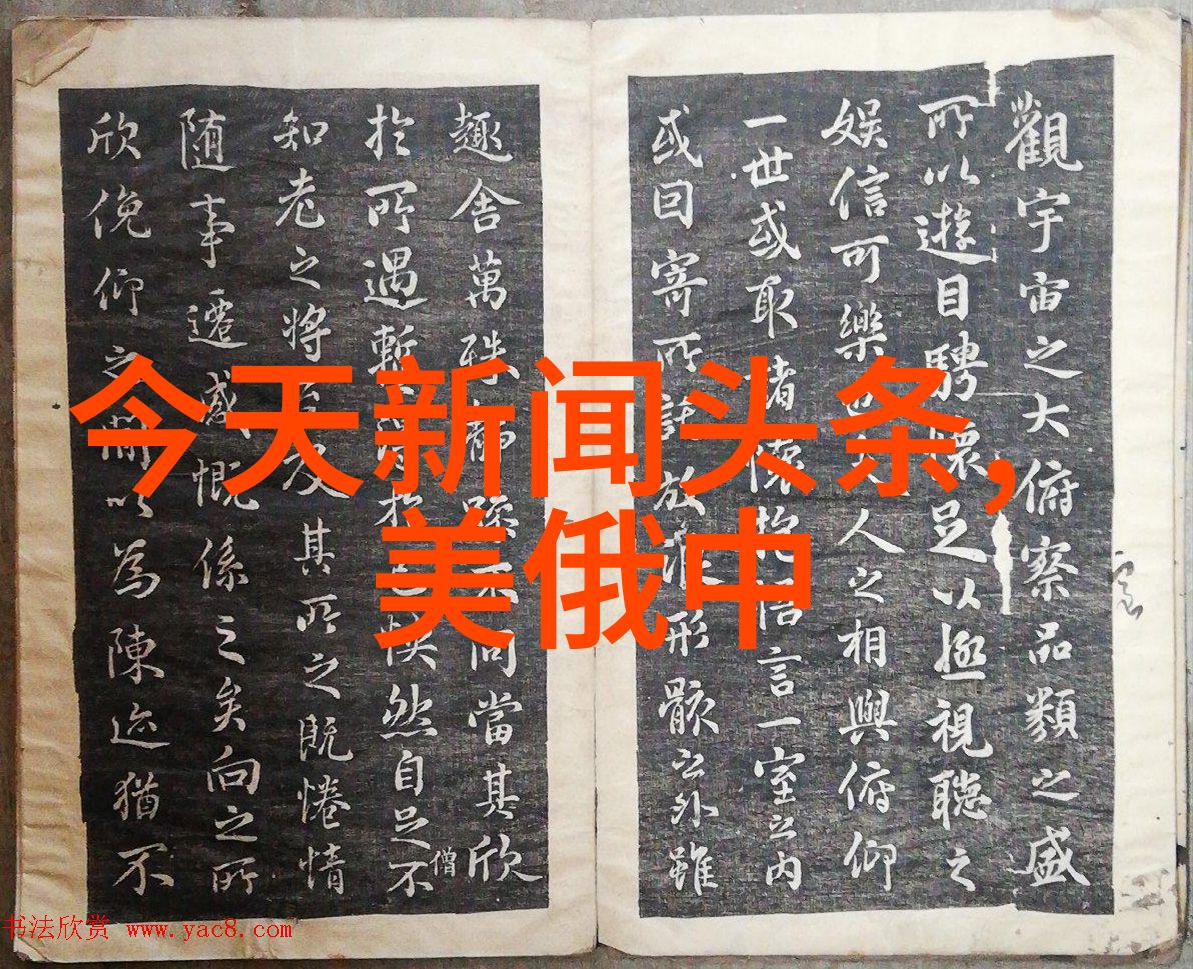 觀宇宙之大俯察品類之盛
所以遊目騁懷足以極視聽之
娛信可樂也夫人之相與俯仰
一世或取諸懷抱悟言一室之內
或因寄所託放浪形骸之外雖
趣舍萬殊靜躁不同當其欣
僧
於所遇暫得於己怏然自足不
知老之將至及其所之既惓情
隨事遷感慨係之矣向之所
欣俛仰之間以為陳迹猶不
今天新闻头条,
美俄中
书法欣赏 www.yac8.com